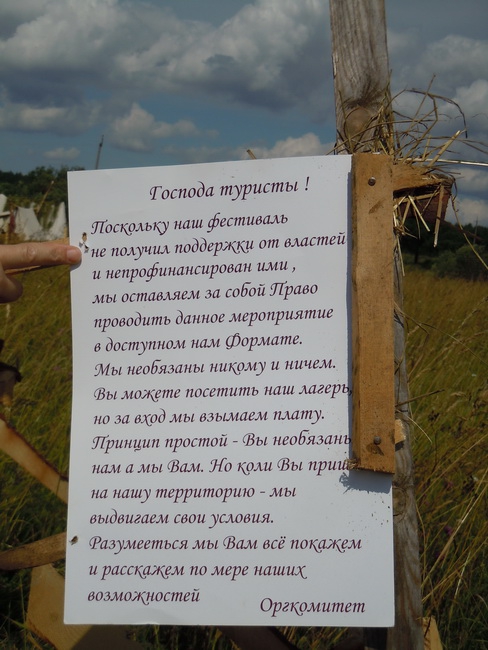 Господа туристы !
Поскольку наш фестиваль
не получил поддержки от властей
и непрофинансирован ими ,
мы оставляем за собой Право
проводить данное мероприятие
в доступном нам Формате.
Мы необязаны никому и ничем.
Вы можете посетить наш лагерь,
но за вход мы взымаем плату.
Принцип простой - Вы необязаны
нам а мы Вам. Но коли Вы
на нашу территорию - мы
выдвигаем свои условия.
Разумееться мы Вам всё покажем
и расскажем по мере наших
возможностей
Оргкомитет